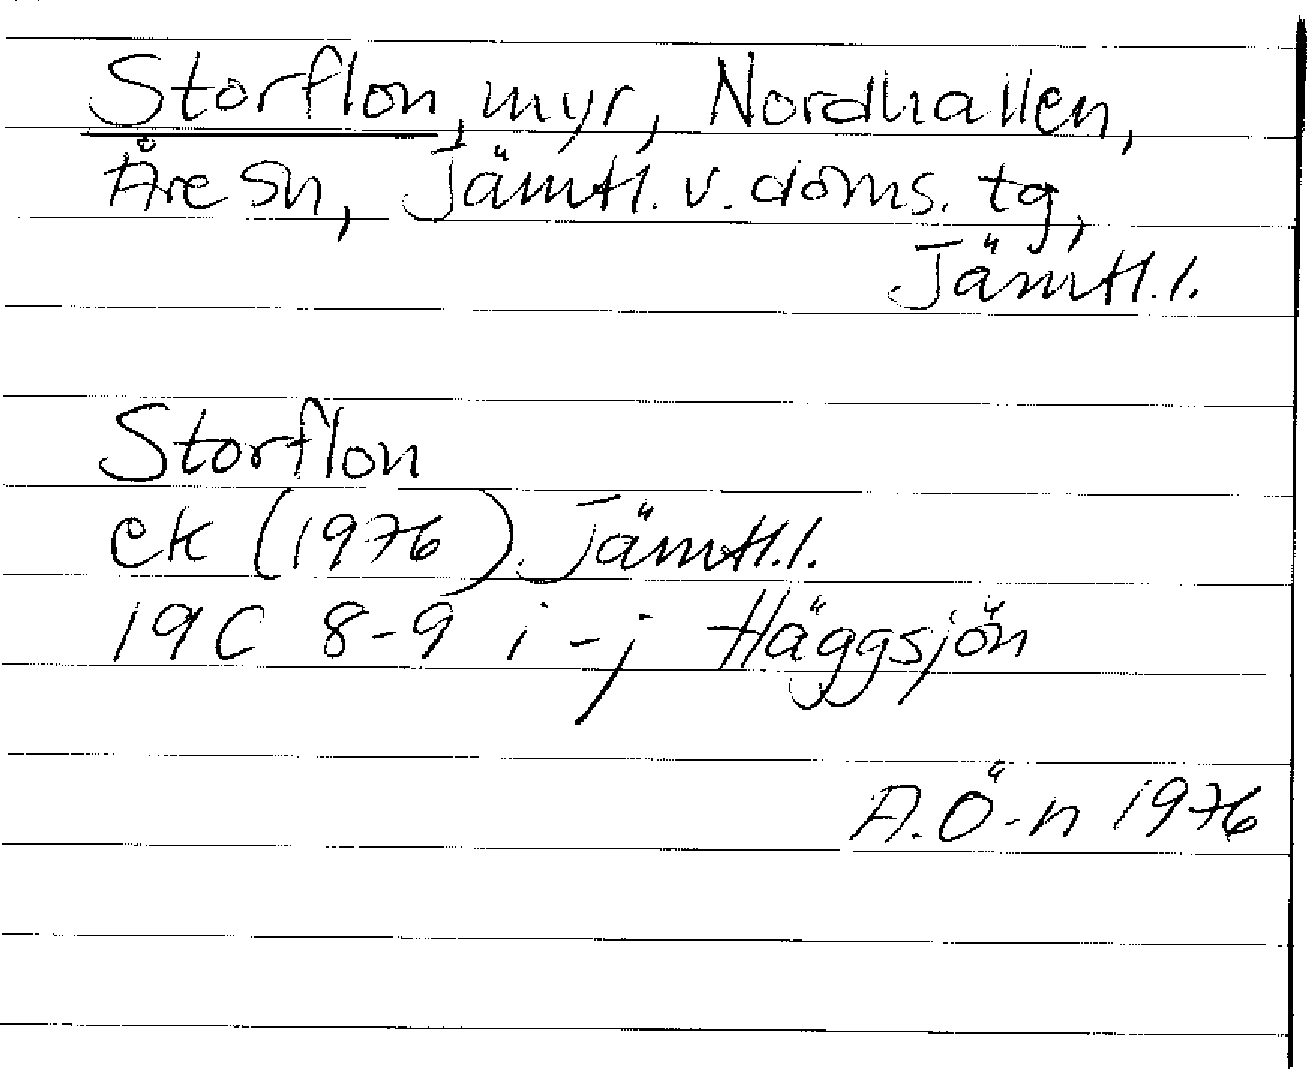 Storflon, myr, Nordhallen,
Åre sn, Jämtl. v. doms. tg,
Jämtl. l.
Storflon
ek (1976) Jämtl. l.
19C 8-9 i-j Häggsjön
A. Ö-n 1976